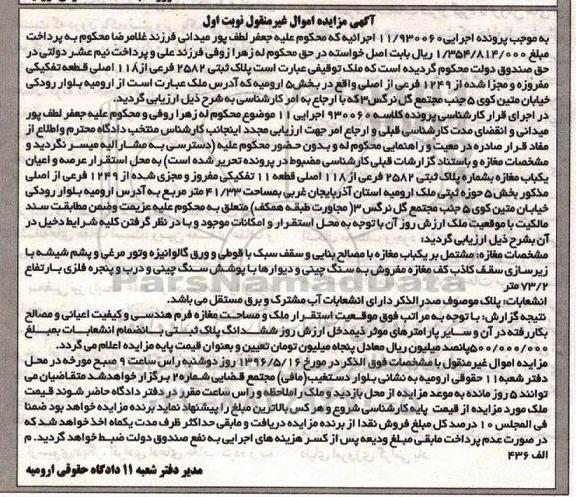 آگهی مزایده اموال غیرمنقول نوبت اول
به موجب پرونده اجرایی ۱۱/۹۳۰۰۶۰ اجرائیه که محکوم علیه جعفر لطف پور میدانی فرزند غلامرضا محکوم به پرداخت
مبلغ ۱/۳۵۴/۸۱۴/۰۰۰ ریال بابت اصل خواسته در حق محکوم له زهرا زوفی فرزند علی و پرداخت نیم عشر دولتی در
حق صندوق دولت محکوم گردیده است که ملک توقیفی عبارت است پلاک ثبتی ۲۵۸۲ فرعی از ۱۱۸ اصلی قطعه تفکیکی
مفروزه و مجزا شده از ۱۲۴۹ فرعی از اصلی واقع در بخش ۵ ارومیه که آدرس ملک عبارت است از ارومیه بلوار رودکی
خیابان متین کوی ۵ جنب مجتمع گل نرگس ۳ که با ارجاع به امر کارشناسی به شرح ذیل ارزیابی گردید.
در اجرای قرار کارشناسی پرونده کلاسه ۹۳۰۰۶۰ اجرایی ۱۱ موضوع محکوم له زهرا روفی و محکوم علیه جعفر لطف پور
میدانی و انقضای مدت کارشناسی قبلی و ارجاع امر جهت ارزیابی مجدد اینجانب کارشناس منتخب دادگاه محترم و اطلاع از
مفاد قرار صادره در معیت و راهنمایی محکوم له و بدون حضور محکوم علیه (دسترسی به مشارالیه میسر نگردید و
مشخصات مغازه و باستناد گزارشات قبلی کارشناسی مضبوط در پرونده تحریر شده است) به محل استقرار عرصه و اعیان
یکباب مغازه بشماره پلاک ثبتی ۲۵۸۲ فرعی از ۱۱۸ اصلی قطعه ۱۱ تفکیکی مفروز و مجزی شده از ۱۲۴۹ فرعی از اصلی
مذکور بخش ۵ حوزه ثبتی ملک ارومیه استان آذربایجان غربی بمساحت ۴۱/۳۳ متر مربع به آدرس ارومیه بلوار رودکی
خیابان متین کوی ۵ جنب مجتمع گل نرگس ۳ (مجاورت طبقه همکف) متعلق به محکوم علیه عزیمت وضمن مطابقت سند
مالکیت با موقعیت ملک ارزش روز آن با توجه به محل استقرار و امکانات موجود و با در نظر گرفتن کلیه شرایط دخیل در
آن بشرح ذیل ارزیابی گردید:
مشخصات مغازه: مشتمل بر یکباب مغازه با مصالح بنایی و سقف سبک با قوطی و ورق گالوانیزه وتور مرغی و پشم شیشه با
زیرسازی سقف کاذب کف مغازه مفروش به سنگ چینی و دیوارها با پوشش سنگ چینی و درب و پنجره فلزی بارتفاع
۷۳/۲ متر
انشعابات: پلاک موصوف صدر الذکر دارای انشعابات آب مشترک و برق مستقل می باشد.
نتیجه گزارش: با توجه به مراتب فوق موقعیت استقرار ملک و مساحت مغازه فرم هندسی و کیفیت اعیانی و مصالح
بکاررفته در آن و سایر پارامترهای موثر ذیمدخل ارزش روز ششدانگ پلاک ثبتی بانضمام انشعابات بمبلغ
۵۰۰/۰۰۰/۰۰۰ پانصد میلیون ریال معادل پنجاه میلیون تومان تعیین و بعنوان قیمت پایه مزایده اعلام می گردد.
مزایده اموال غیرمنقول با مشخصات فوق الذکر در مورخ ۱۳۹۶/۵/۱۶ روز دوشنبه راس ساعت ۹ صبح مورخه در محل
دفتر شعبه ۱۱ حقوقی ارومیه به نشانی بلوار دستغیب (مافی) مجتمع قضایی شماره ۲ برگزار خواهد شد متقاضیان می
توانند ۵ روز مانده به موعد مزایده از محل بازدید و ملک را ملاحظه و راس ساعت مقرر در دفتر دادگاه حاضر شوند قیمت
ملک مورد مزایده از قیمت پایه کارشناسی شروع و هر کس بالاترین مبلغ را پیشنهاد نماید برنده مزایده خواهد بود ضمنا
فی المجلس ۱۰ درصد کل مبلغ فروش نقدا از برنده مزایده دریافت و مابقی حداکثر ظرف مدت یکماه اخذ خواهد شد که
در صورت عدم پرداخت مابقی مبلغ ودیعه پس از کسر هزینه های اجرایی به نفع صندوق دولت ضبط خواهد گردید. م
الف ۴۳۶
مدیر دفتر شعبه ۱۱ دادگاه حقوقی ارومیه
ParsNamadData